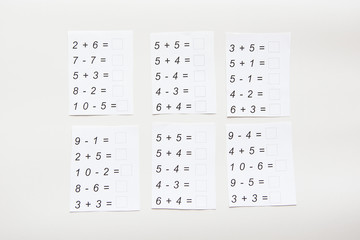 2 + 6 =
7 - 7 =
5 + 3 =
8 - 2 =
10 - 5 =
5 + 5 =
5 + 4 =
5 - 4 =
4 - 3 =
6 + 4 =
3 + 5 =
5 + 1 =
5 - 1 =
4 - 2 =
6 + 3 =
9 - 1 =
2 + 5 =
10 - 2 =
8 - 6 =
3 + 3 =
5 + 5 =
5 + 4 =
5 - 4 =
4 - 3 =
6 + 4 =
9 - 4 =
4 + 5 =
10 - 6 =
9 - 5 =
3 + 3 =